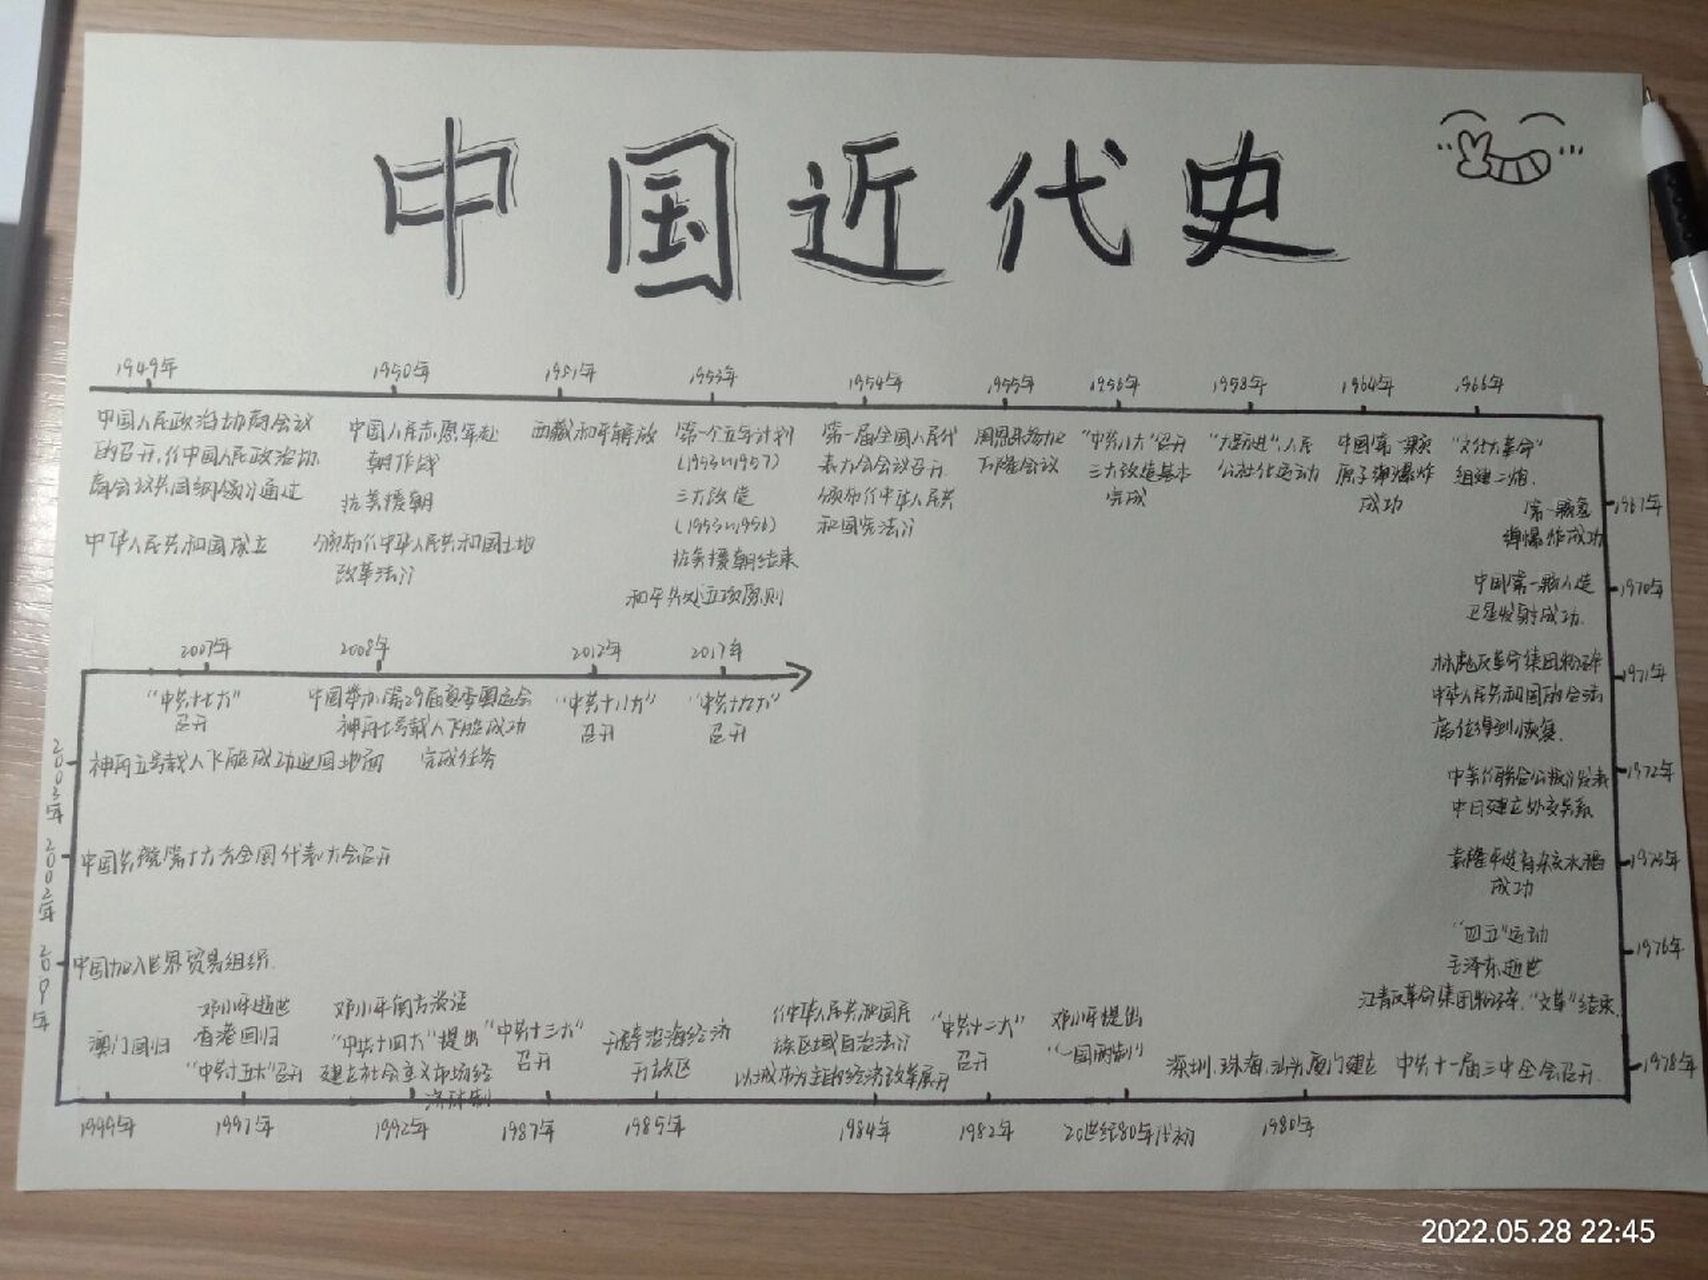 中国近代史
1949年
中国人民政治协商会议
的召开，《中国人民政治协
商会议共同纲领》通过
中华人民共和国成立
1950年
中国人民志愿军赴
朝作战
抗美援朝
颁布《中华人民共和国土地
改革法》
1951年
西藏和平解放
1953年
第一个五年计划
(1953~1957)
三大改造
(1953~1956)
抗美援朝结束
和平共处五项原则
1954年
第一届全国人民代
表大会会议召开.
颁布《中华人民共
和国宪法》
1955年
周恩来参加
万隆会议
1956年
"中共八大"召开
三大改造基本
完成
1958年
"大跃进",人民
公社化运动
1964年
中国第一颗
原子弹爆炸
成功
1966年
"文化大革命"
组建二炮.
1967年
第一颗氢
弹爆炸成功
1970年
中国第一颗人造
卫星发射成功.
1971年
林彪反革命集团粉碎
中华人民共和国的合法
席位得到恢复.
1972年
中美《联合公报》发表
中日建立外交关系
袁隆平选育杂交水稻
成功
1976年
"四五"运动
毛泽东逝世
江青反革命集团粉碎."文革"结束.
1978年
中共十一届三中全会召开.
1980年
深圳.珠海.汕头.厦门建立
20世纪80年代初
邓小平提出
"一国两制"
1982年
"中共十二大"
召开
1984年
《中华人民共和国民
族区域自治法》
以城市为主的经济改革展开
1985年
开辟沿海经济
开放区
1987年
"中共十三大"
召开
1992年
邓小平南方谈话
"中共十四大"提出
建立社会主义市场经
济体制
1997年
邓小平逝世
香港回归
"中共十五大"召开
1999年
澳门回归
中国加入世界贸易组织.
2002年
中国共产党第十六次全国代表大会召开
2003年
神舟五号载人飞船成功返回地面
2007年
"中共十七大"
召开
2008年
中国举办第29届夏季奥运会
神舟七号载人飞船成功
完成任务
2012年
"中共十八大"
召开
2017年
"中共十九大"
召开
2022.05.28 22:45